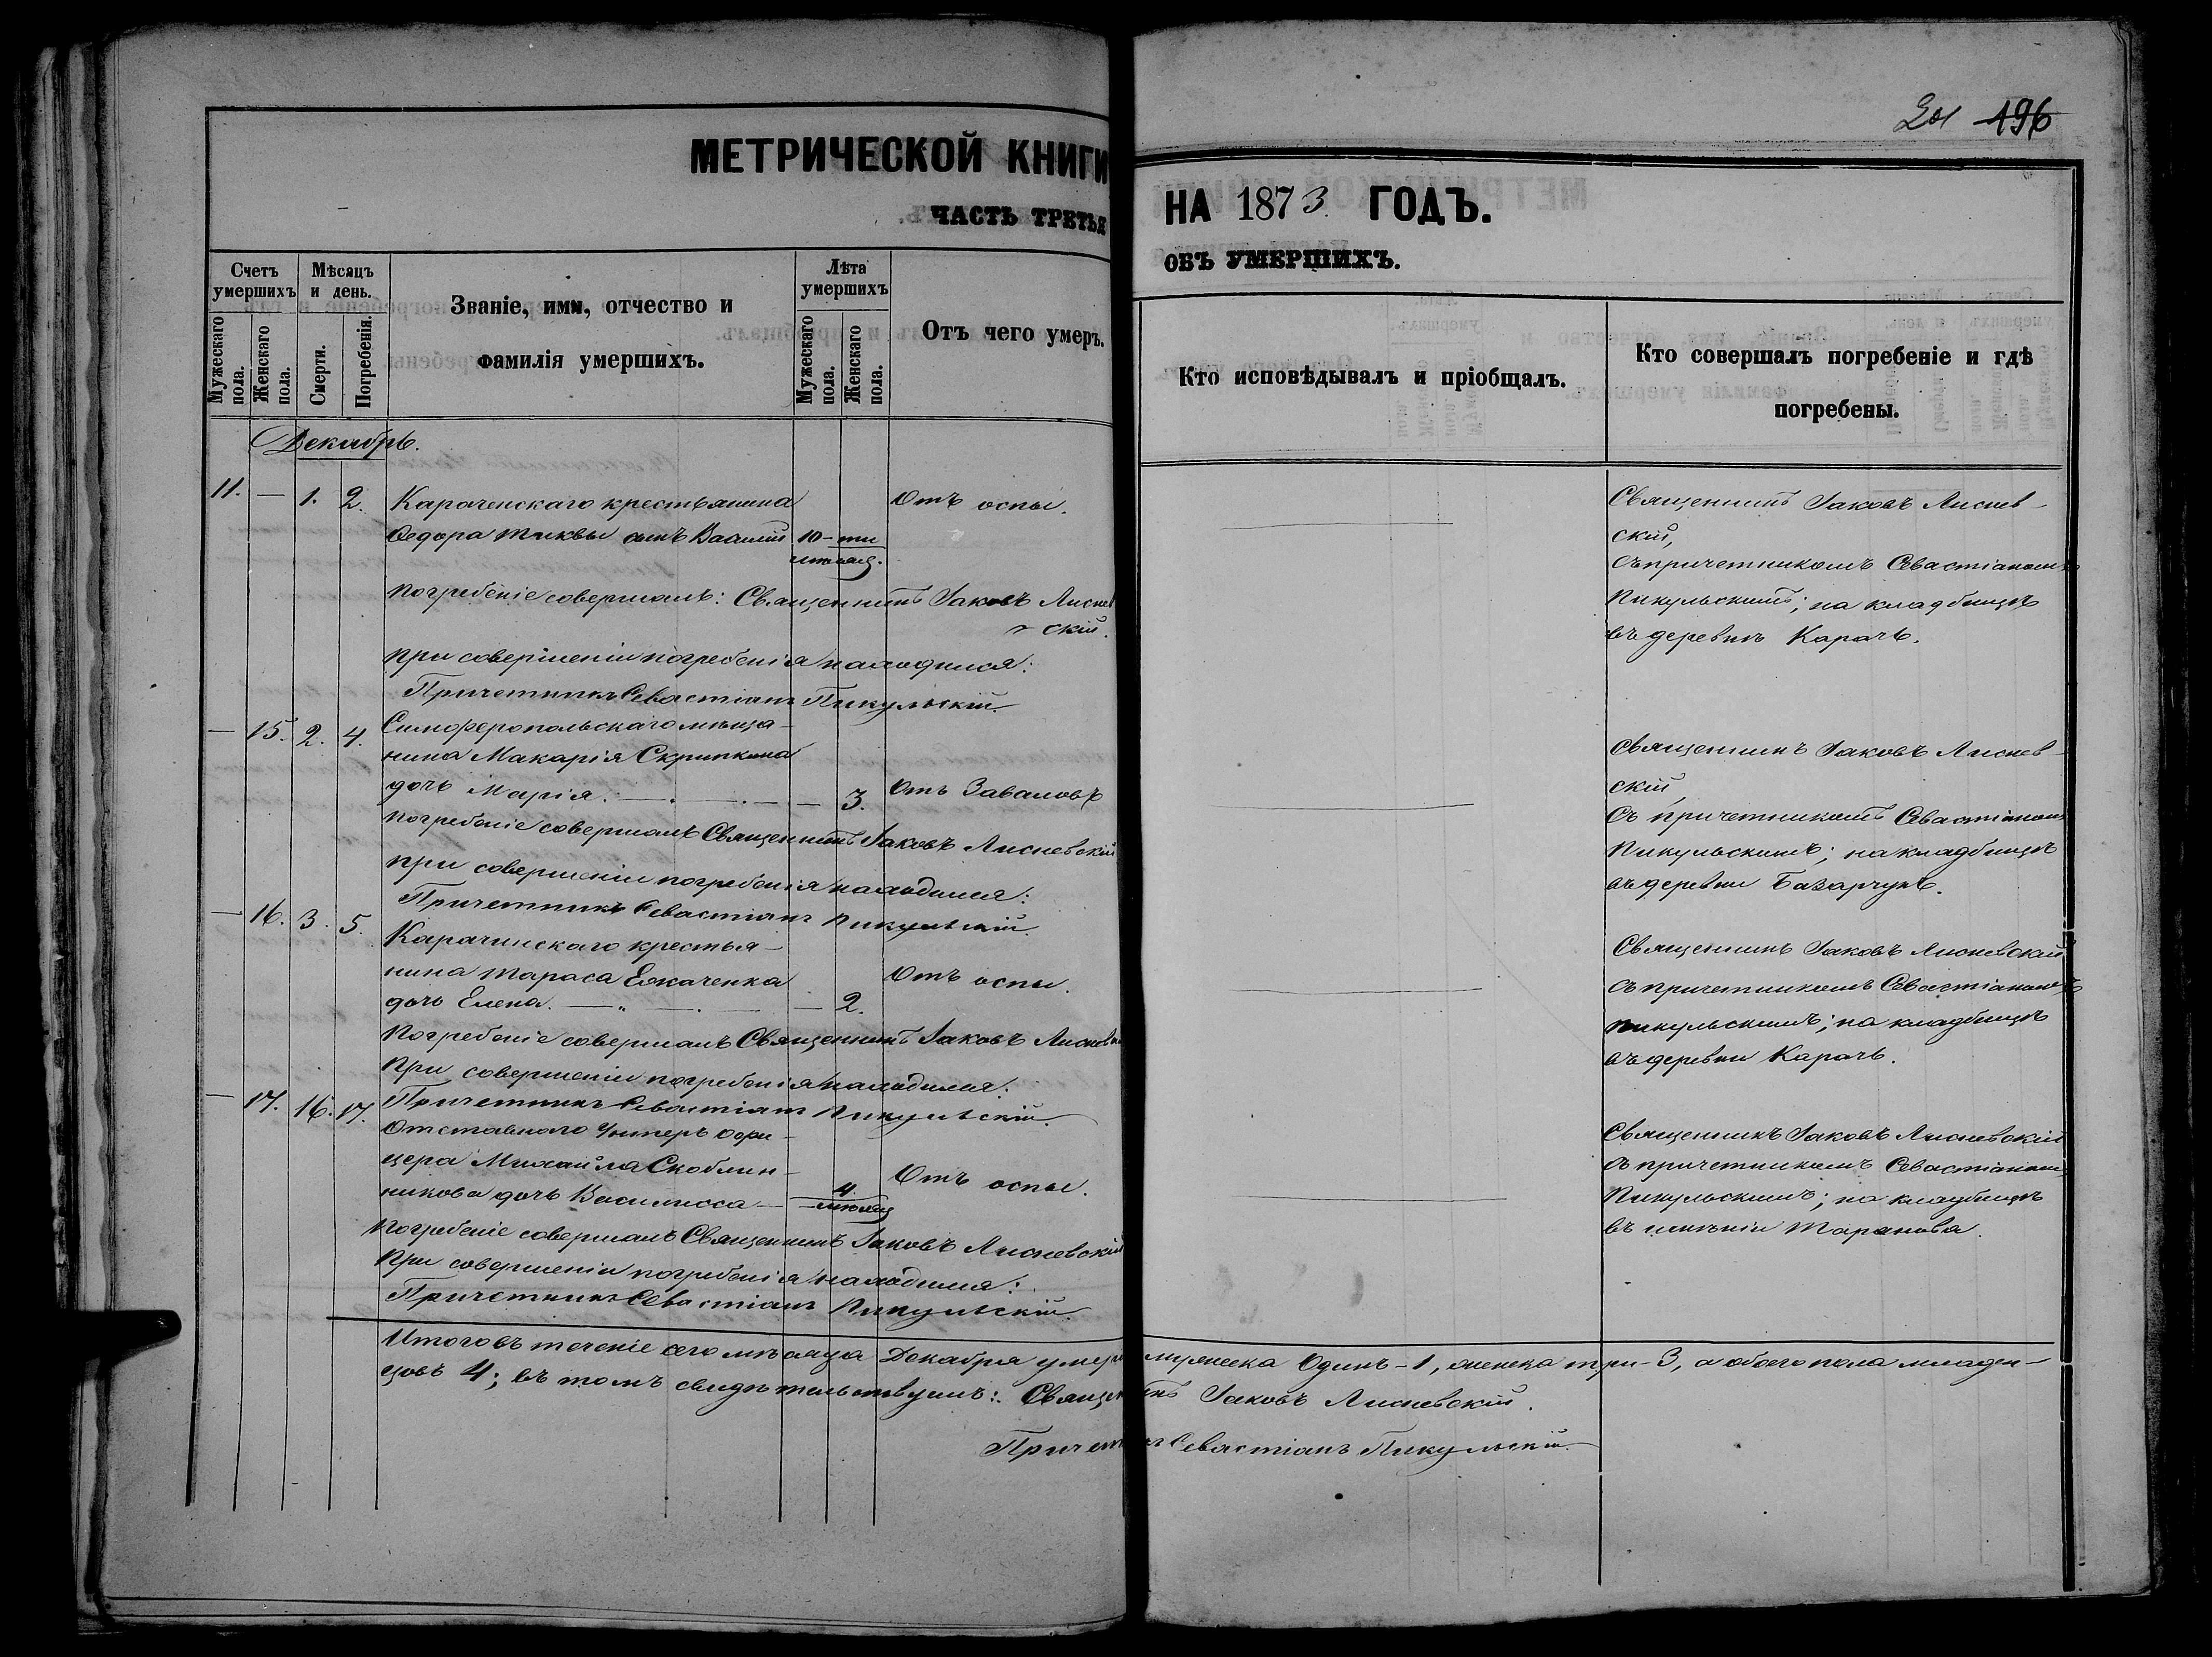 201 196
МЕТРИЧЕСКОЙ КНИГИ
ЧАСТЬ ТРЕТЬЯ
НА 1873 ГОДЪ.
ОБЪ УМЕРШИХЪ.
Счетъ умершихъ
Мѣсяцъ и день.
Званіе, имя, отчество и фамилія умершихъ.
Лѣта умершихъ
Отъ чего умеръ.
Кто исповѣдывалъ и пріобщалъ.
Кто совершалъ погребеніе и гдѣ погребены.
Мужескаго пола.
Женскаго пола.
Смерти.
Погребенія.
Мужескаго пола.
Женскаго пола.
Декабрь.
11. — 1. 2. Караченскаго крестьянина Отъ оспы.
Ѳедора Тиквы сынъ Василій 10-ти
мѣсяц.
Погребеніе совершалъ: Священникъ Іаковъ Лиснев
скій.
При совершеніи погребенія находился:
Причетникъ Севастіанъ Пикульскій.
Священникъ Іаковъ Лиснев-
скій,
съ причетникомъ Севастіаномъ
Пикульскимъ; на кладбищѣ
въ деревнѣ Карачь.
— 15. 2. 4. Симферопольскаго мѣща-
нина Макарія Скрипкина
дочь Марія. — 3. Отъ Заваловъ
Погребеніе совершалъ Священникъ Іаковъ Лисневскій
При совершеніи погребенія находился:
Причетникъ Севастіанъ Пикульскій.
Священникъ Іаковъ Лиснев-
скій,
Съ причетникомъ Севастіаномъ
Пикульскимъ; на кладбищѣ
въ деревни Базарчукъ.
— 16. 3. 5. Карачинскаго крестья-
нина Тараса Ежаченка Отъ оспы.
дочь Елена. — 2.
Погребеніе совершалъ Священникъ Іаковъ Лиснев
При совершеніи погребенія находился:
Причетникъ Севастіанъ Пикульскій.
Священникъ Іаковъ Лисневскій
съ причетникомъ Севастіаномъ
Пикульскимъ; на кладбищѣ
въ деревни Карачь.
— 17. 16. 17. Отставнаго Унтеръ Офи-
цера Михайла Скоблин-
никова дочь Василисса — 4. мѣсяц Отъ оспы.
Погребеніе совершалъ Священникъ Іаковъ Лисневскій
При совершеніи погребенія находился:
Причетникъ Севастіанъ Пикульскій.
Священникъ Іаковъ Лисневскій
съ причетникомъ Севастіаномъ
Пикульскимъ; на кладбищѣ
въ имѣніи Таранова.
Итого въ теченіе сего мѣсяца Декабря умер мужеска Одинъ-1, женска три-3, а обоего пола младен-
цовъ 4; въ томъ свидѣтельствуемъ: Священикъ Іаковъ Лисневскій.
Причетникъ Севастіанъ Пикульскій.